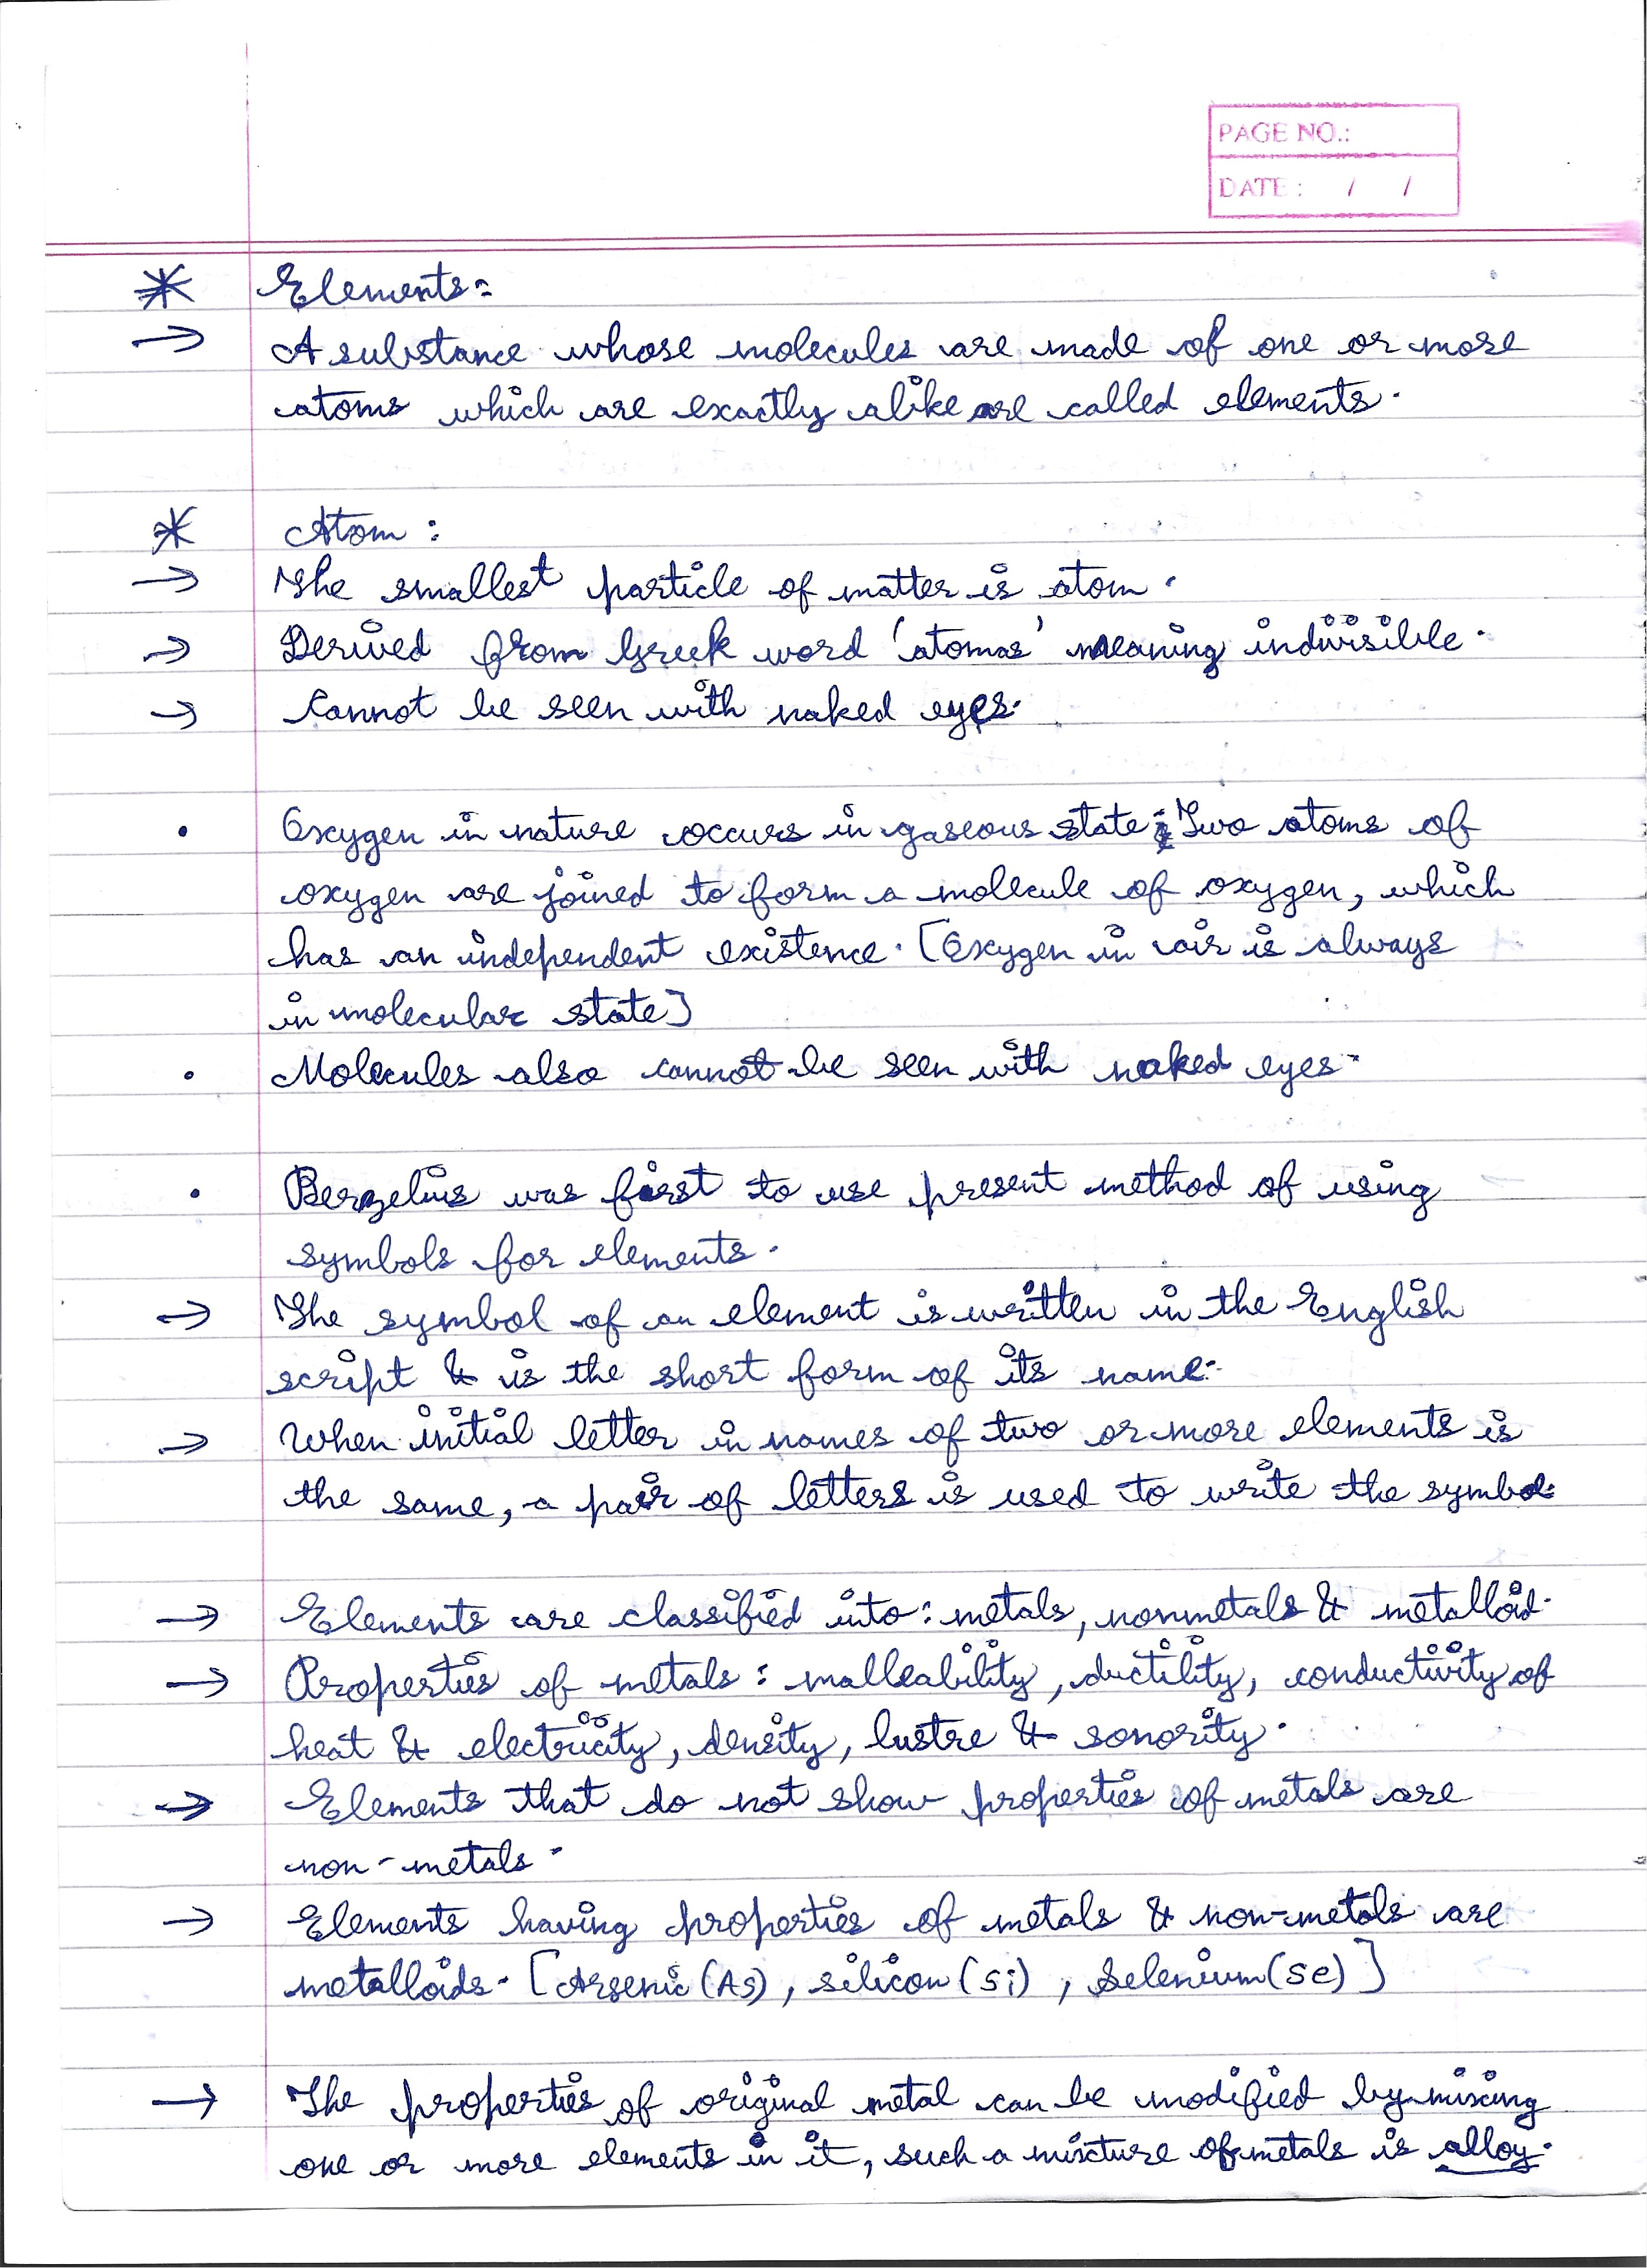 PAGE NO.:
DATE : / /
* Elements:
→ A substance whose molecules are made of one or more
atoms which are exactly alike are called elements.
* Atom :
→ The smallest particle of matter is atom.
→ Derived from Greek word 'atomas' meaning indivisible.
→ Cannot be seen with naked eyes.
• Oxygen in nature occurs in gaseous state; Two atoms of
oxygen are joined to form a molecule of oxygen, which
has an independent existence. [Oxygen in air is always
in molecular state]
• Molecules also cannot be seen with naked eyes.
• Berzelius was first to use present method of using
symbols for elements.
→ The symbol of an element is written in the English
script & is the short form of its name.
→ When initial letter in names of two or more elements is
the same, a pair of letters is used to write the symbol.
→ Elements are classified into: metals, nonmetals & metalloid.
→ Properties of metals : malleability, ductility, conductivity of
heat & electricity, density, lustre & sonority.
→ Elements that do not show properties of metals are
non-metals.
→ Elements having properties of metals & non-metals are
metalloids. [Arsenic (As), silicon (Si), Selenium (Se)]
→ The properties of original metal can be modified by mixing
one or more elements in it, such a mixture of metals is alloy.